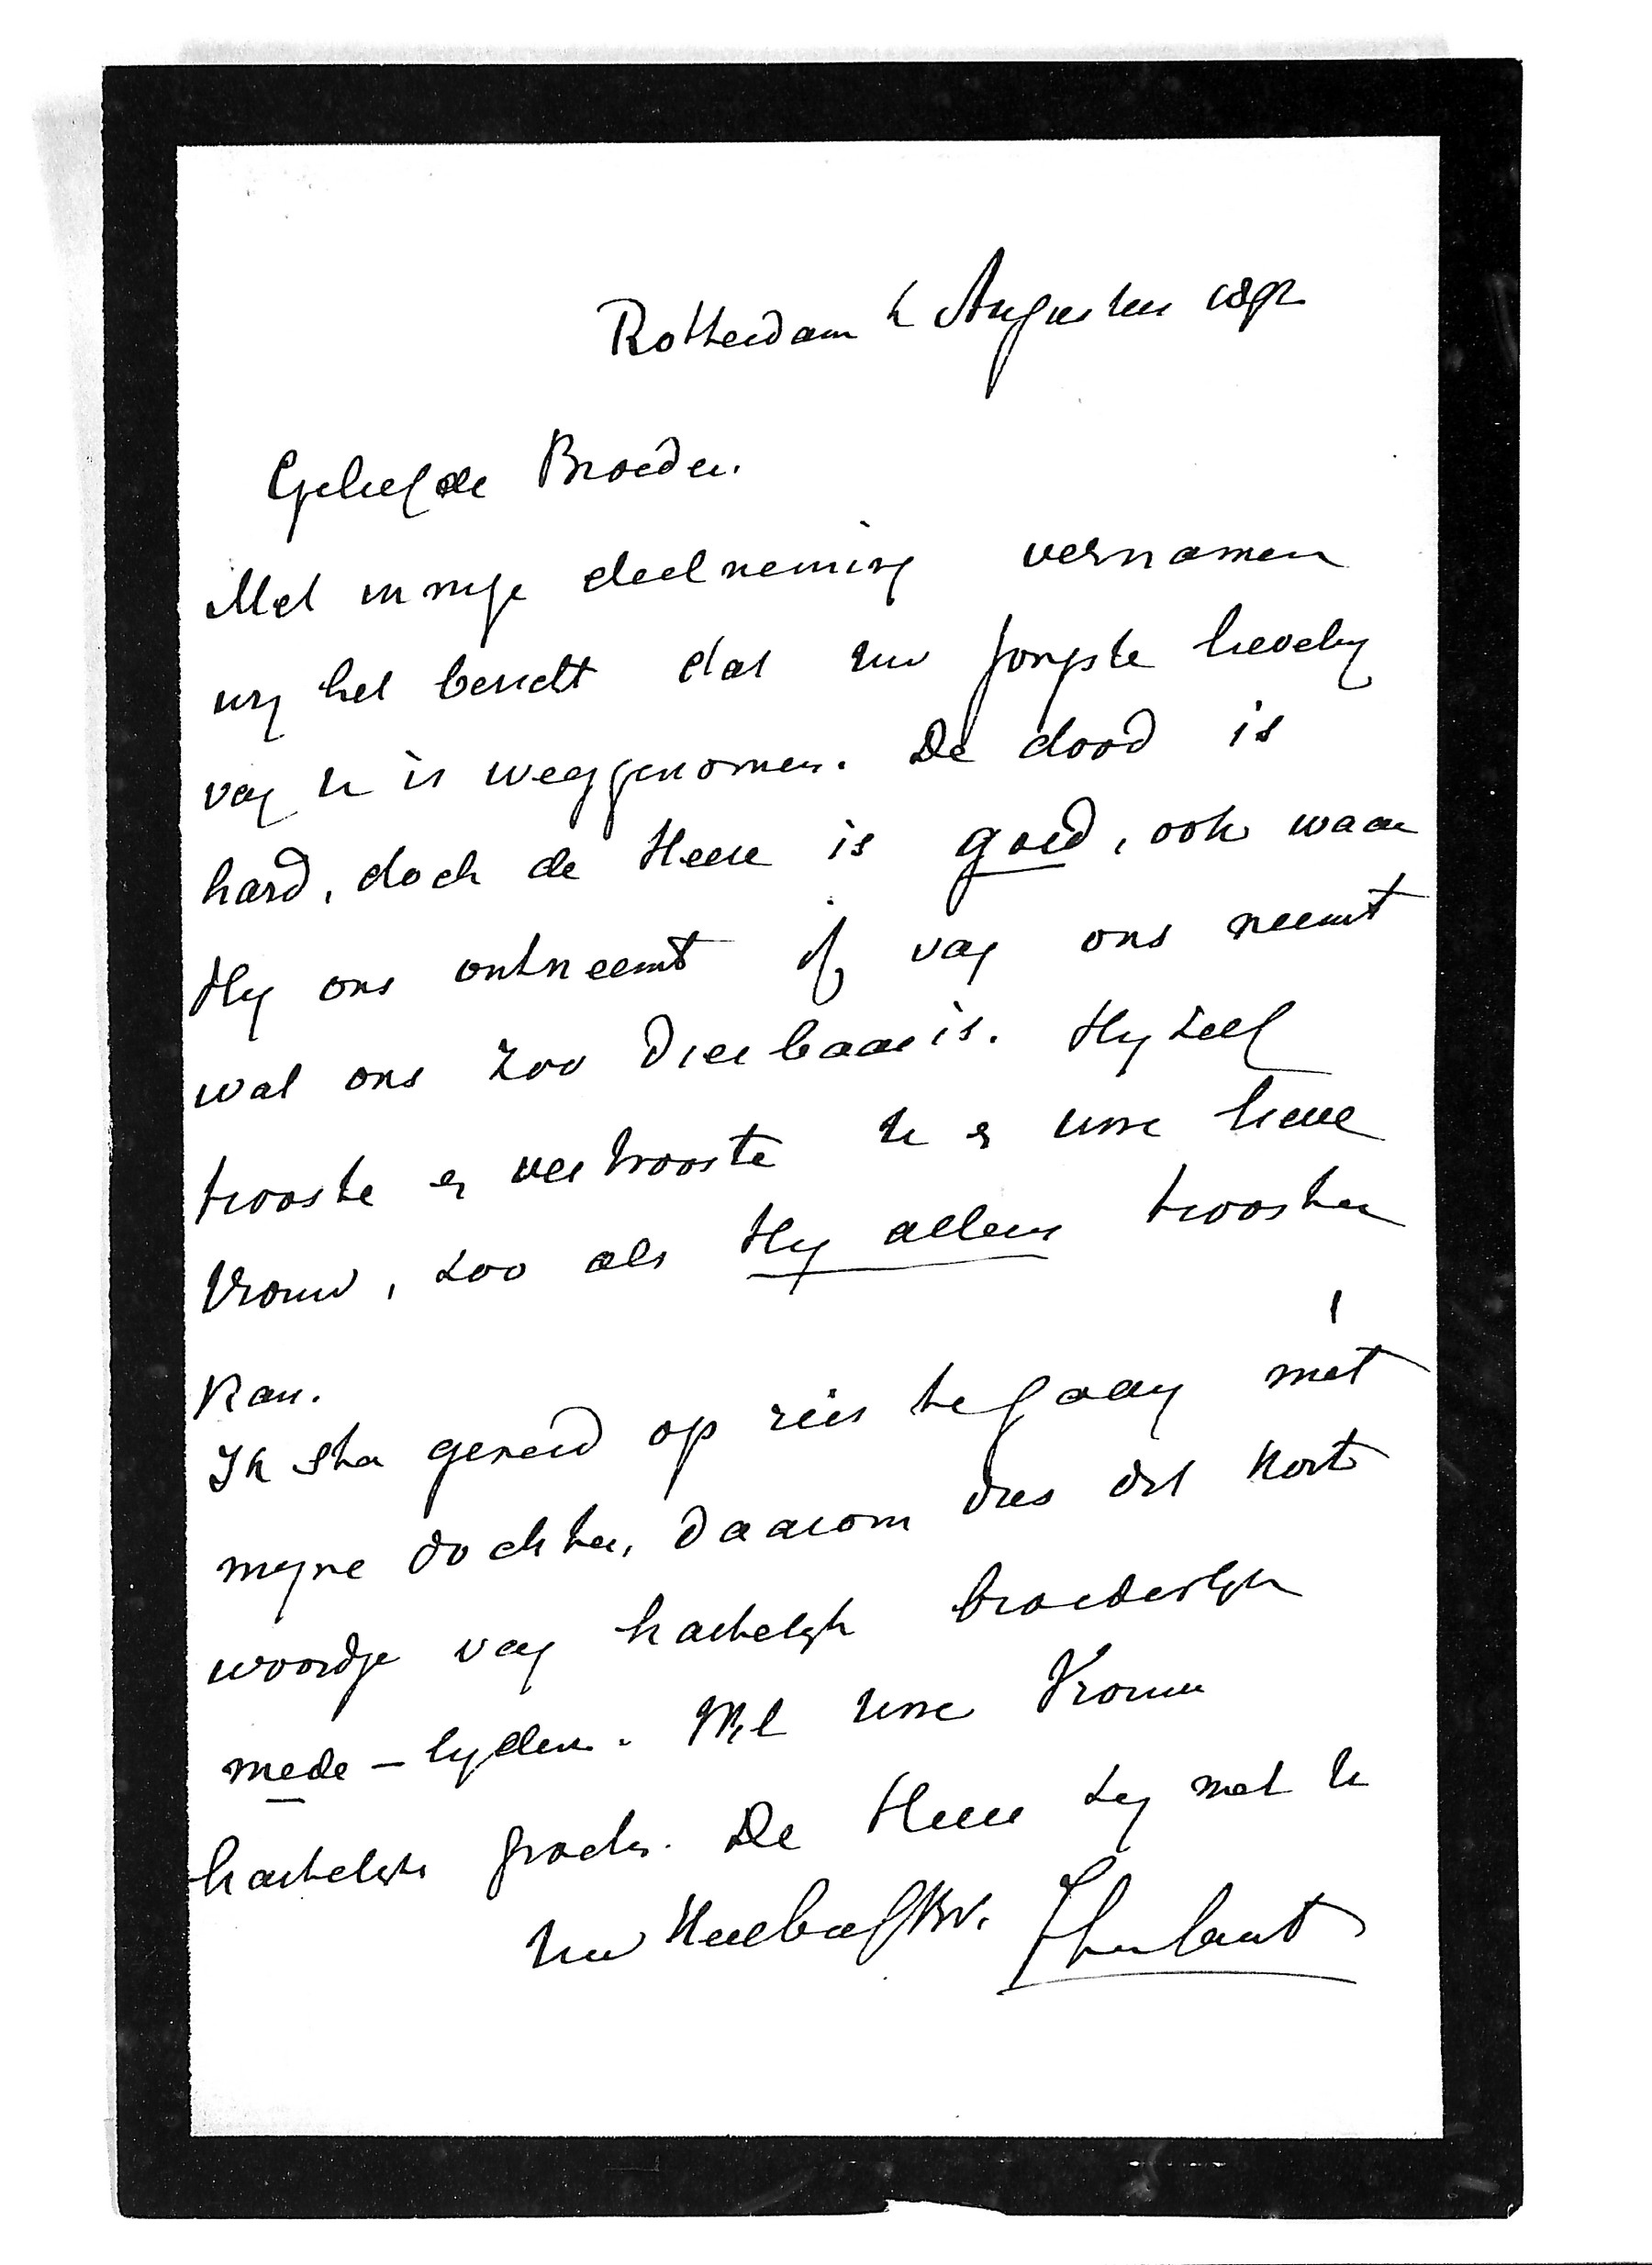 Rotterdam Augustus 1892
Geliefde Broeder.
Met innige deelneming vernamen
wij het bericht dat uw jongste lieveling
van u is weggenomen. De dood is
hard, doch de Heere is goed, ook waar
Hij ons ontneemt of van ons neemt
wat ons zoo dierbaar is. Hij zelf
trooste en vertrooste u en uwe lieve
Vrouw, zoo als Hij alleen troosten
kan.
Ik sta gereed op reis te gaan met
mijne dochter, daarom dus dit kort
woordje van hartelijk broederlijk
mede-lijden. Met uwe Vrouw
hartelijk gegroet. De Heere zij met u
uw